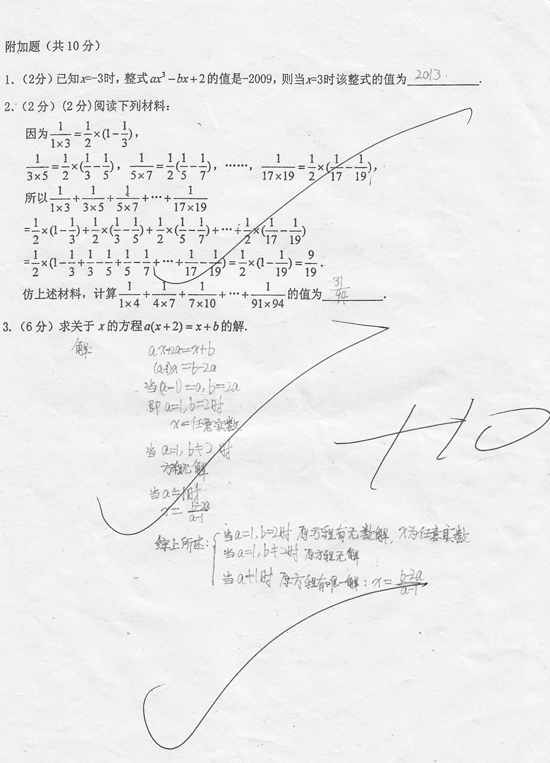 附加题（共10分）
1.（2分）已知x=-3时，整式ax³-bx+2的值是-2009，则当x=3时该整式的值为 2013 .
2.（2分）（2分）阅读下列材料：
因为1/(1×3)=1/2×(1-1/3)，
1/(3×5)=1/2×(1/3-1/5)，1/(5×7)=1/2(1/5-1/7)，……，1/(17×19)=1/2×(1/17-1/19)，
所以1/(1×3)+1/(3×5)+1/(5×7)+…+1/(17×19)
=1/2×(1-1/3)+1/2×(1/3-1/5)+1/2×(1/5-1/7)+…+1/2×(1/17-1/19)
=1/2×(1-1/3+1/3-1/5+1/5-1/7+…+1/17-1/19)=1/2×(1-1/19)=9/19.
仿上述材料，计算1/(1×4)+1/(4×7)+1/(7×10)+…+1/(91×94)的值为 31/94 .
3.（6分）求关于x的方程a(x+2)=x+b的解.
解 ax+2a=x+b
(a-1)x=b-2a
当(a-1)=0,b=2a
即a=1,b=2时
x=任意实数
当a=1,b≠2时
方程无解
当a≠1时
x=(b-2a)/(a-1)
综上所述:
当a=1,b=2时 原方程有无数解,x为任意实数
当a=1,b≠2时 原方程无解
当a≠1时 原方程有唯一解:x=(b-2a)/(a-1)
+10